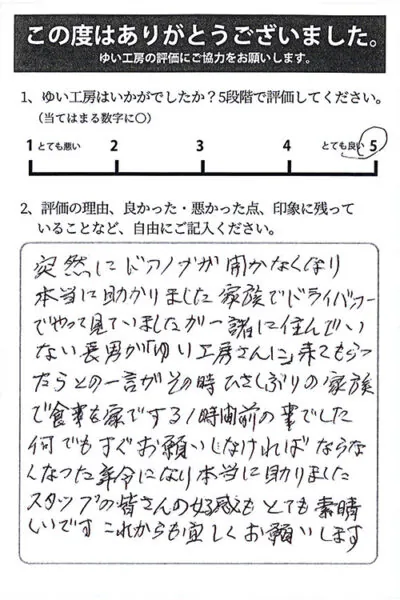 この度はありがとうございました。
ゆい工房の評価にご協力をお願いします。
1、ゆい工房はいかがでしたか？5段階で評価してください。
（当てはまる数字に〇）
1 とても悪い 2 3 4 とても良い 5
2、評価の理由、良かった・悪かった点、印象に残って
いることなど、自由にご記入ください。
突然にドアノブが開かなくなり
本当に助かりました 家族でドライバー
でやって見ていましたが一諸に住んでい
ない長男が「ゆい工房さんに」来てもらっ
たらとの一言がその時ひさしぶりの家族
で食事を家でする1時間前の事でした
何でもすぐお願いしなければならな
くなった年令になり本当に助りました
スタッフの皆さんの好感も とても素晴
しいです これからも宜しくお願いします